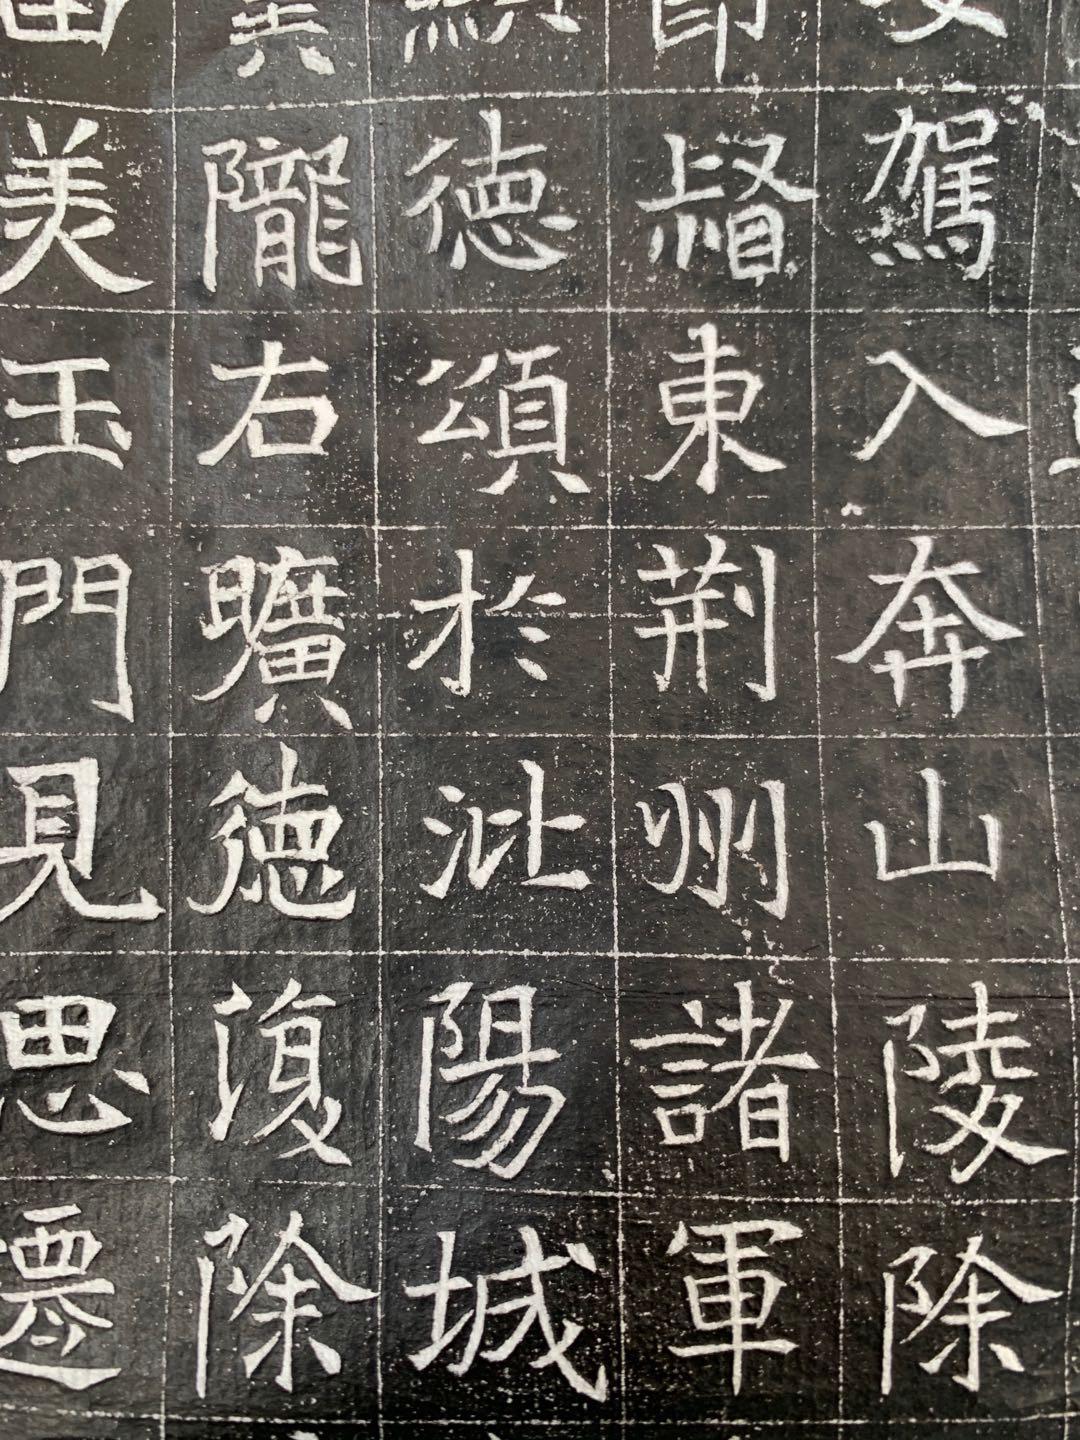 駕入奔山陵除
督東荊州諸軍
德頌於沘陽城
隴右曠德復除
美玉門見思遷